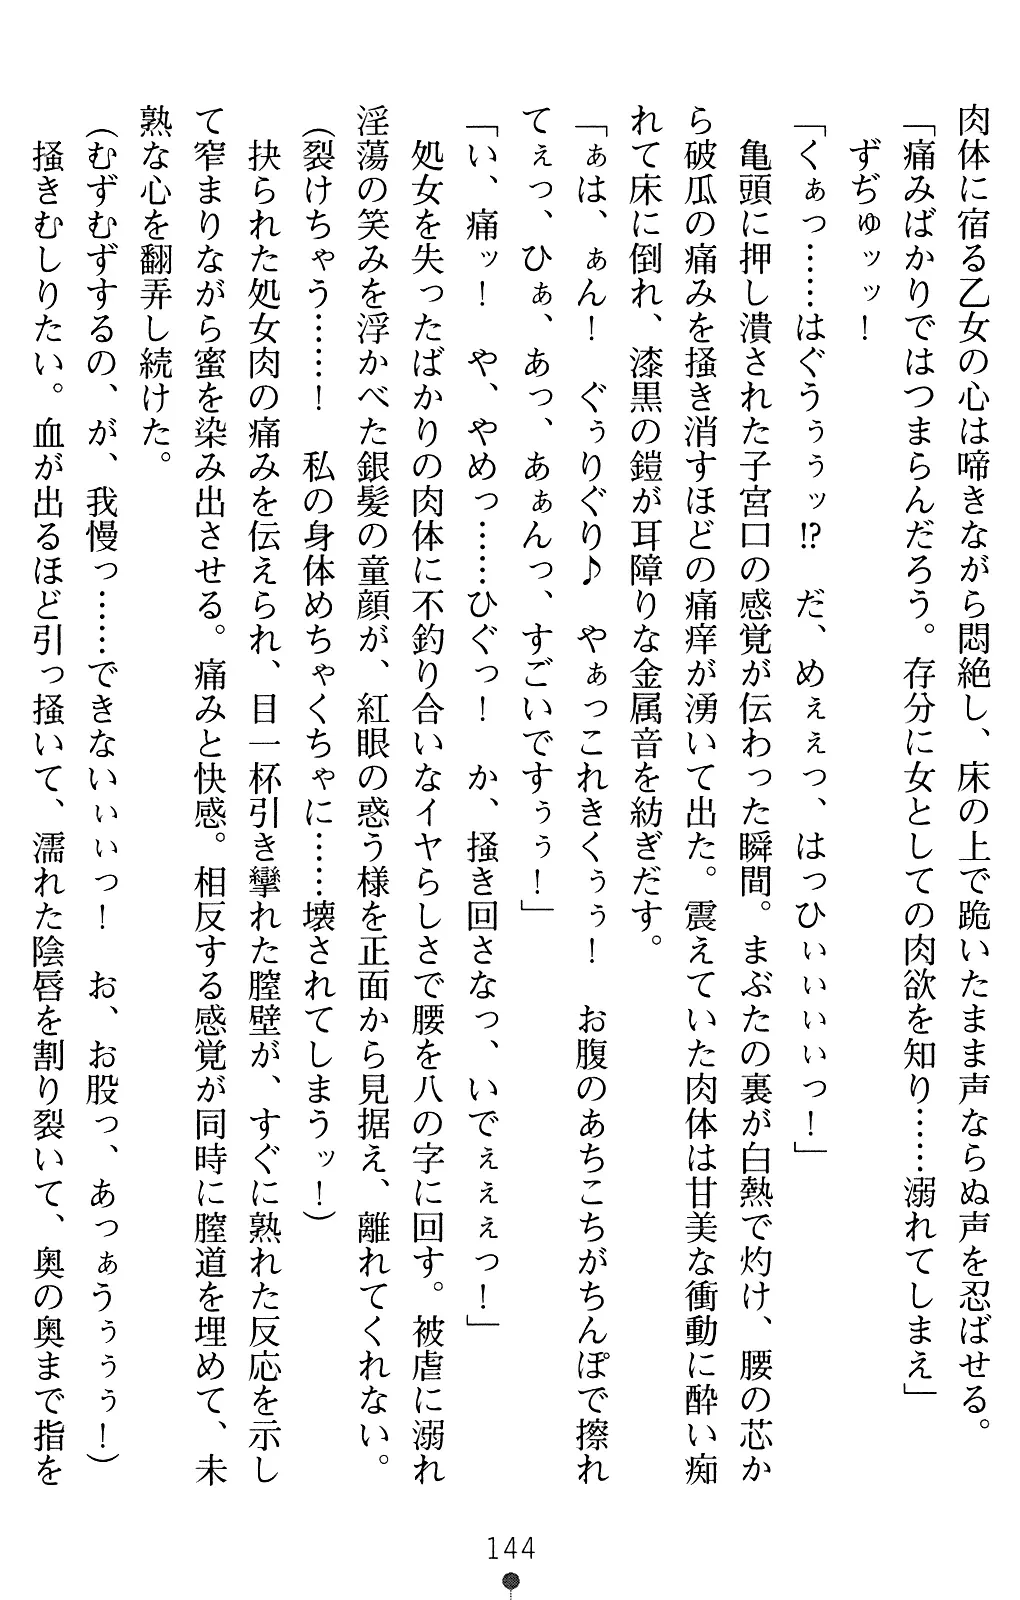 肉体に宿る乙女の心は啼きながら悶絶し、床の上で跪いたまま声ならぬ声を忍ばせる。
「痛みばかりではつまらんだろう。存分に女としての肉欲を知り……溺れてしまえ」
ずぢゅッッ！
「くぁっ……はぐうぅぅッ!?　だ、めぇぇっ、はっひぃぃぃぃっ！」
亀頭に押し潰された子宮口の感覚が伝わった瞬間。まぶたの裏が白熱で灼け、腰の芯か
ら破瓜の痛みを掻き消すほどの痛痒が湧いて出た。震えていた肉体は甘美な衝動に酔い痴
れて床に倒れ、漆黒の鎧が耳障りな金属音を紡ぎだす。
「ぁは、ぁん！　ぐぅりぐり♪　やぁっこれきくぅぅ！　お腹のあちこちがちんぽで擦れ
てぇっ、ひぁ、あっ、あぁんっ、すごいですぅぅ！」
「い、痛ッ！　や、やめっ……ひぐっ！　か、掻き回さなっ、いでぇぇぇっ！」
処女を失ったばかりの肉体に不釣り合いなイヤらしさで腰を八の字に回す。被虐に溺れ
淫蕩の笑みを浮かべた銀髪の童顔が、紅眼の惑う様を正面から見据え、離れてくれない。
（裂けちゃう……！　私の身体めちゃくちゃに……壊されてしまうッ！）
抉られた処女肉の痛みを伝えられ、目一杯引き攣れた膣壁が、すぐに熟れた反応を示し
て窄まりながら蜜を染み出させる。痛みと快感。相反する感覚が同時に膣道を埋めて、未
熟な心を翻弄し続けた。
（むずむずするの、が、我慢っ……できないぃぃっ！　お、お股っ、あっぁうぅぅぅ！）
掻きむしりたい。血が出るほど引っ掻いて、濡れた陰唇を割り裂いて、奥の奥まで指を
144